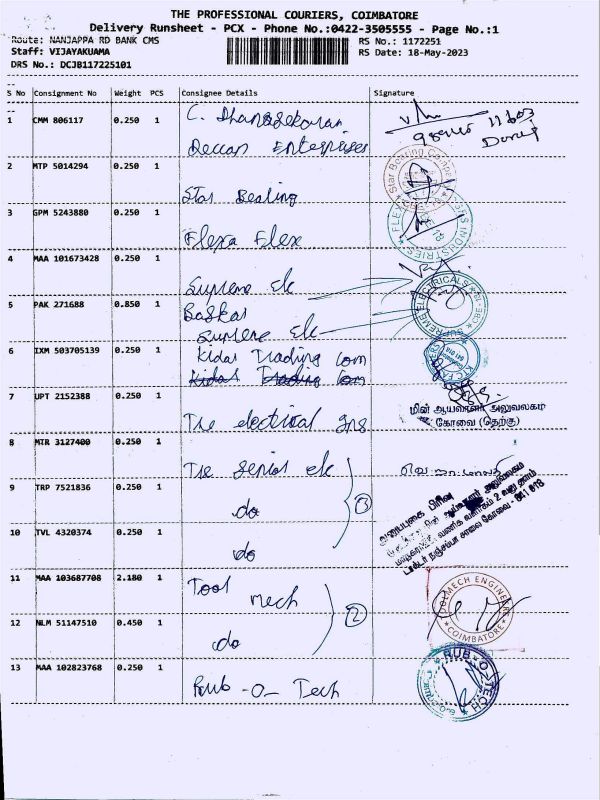 THE PROFESSIONAL COURIERS, COIMBATORE
Delivery Runsheet - PCX - Phone No.:0422-3505555 - Page No.:1
Route: NANJAPPA RD BANK CMS
RS No.: 1172251
Staff: VIJAYAKUAMA
RS Date: 18-May-2023
DRS No.: DCJB117225101
S No Consignment No Weight PCS Consignee Details Signature
1 CMM 806117 0.250 1 C. Dhanasekaran
Deccan Enterprises
2 MTP 5014294 0.250 1
Star Beating
3 GPM 5243880 0.250 1
Flexa Flex
4 MAA 101673428 0.250 1
Supreme Ele
5 PAK 271688 0.850 1 Baskar
Supreme Ele
SUPREME ELECTRICALS
6 IXM 503705139 0.250 1 Kidas Trading Com
Kidas Trading Com
7 UPT 2152388 0.250 1
The electrical Ins
மின் ஆய்வாளர் அலுவலகம்
கோவை (தெற்கு)
8 MTR 3127400 0.250 1
The senior ele
9 TRP 7521836 0.250 1
do
3
10 TVL 4320374 0.250 1
do
அமைப்புகை பிரிவு
கோவை - 641 018
11 MAA 103687708 2.180 1 Tool Mech
TOOLMECH ENGINEERS
COIMBATORE
12 NLM 51147510 0.450 1
do
2
13 MAA 102823768 0.250 1
Rub-O-Tech
RUB-O-TECH